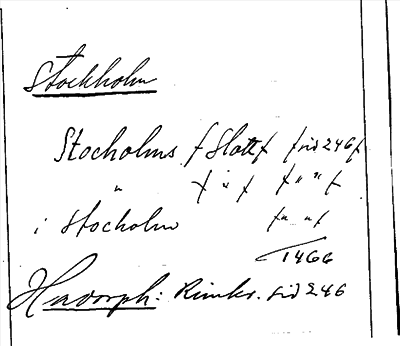 Stockholm
Stocholms (Slott) (sid 246)
" ( " ) ( " " )
i Stocholm ( " " )
1466
Hadorph: Rimkr. sid 246